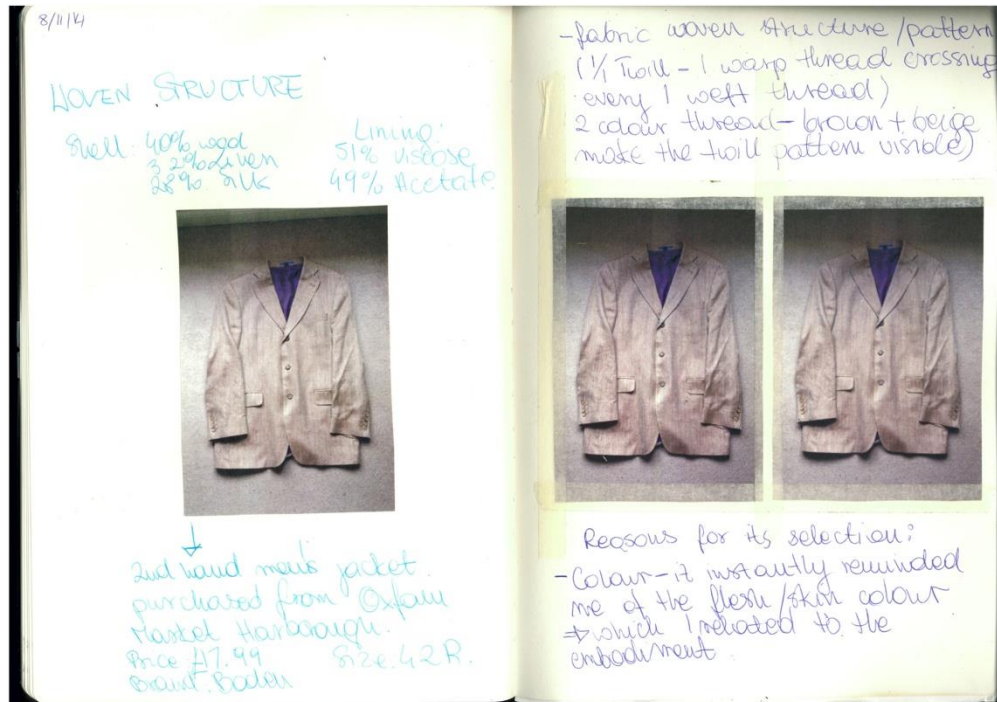 8/11/14
WOVEN STRUCTURE
Shell: 40% wool
32% Linen
28% silk
Lining:
51% viscose
49% Acetate
2nd hand men's jacket
purchased from Oxfam
Market Harborough.
Price £17.99
Size 42R.
Brand: Boden
- fabric woven structure/pattern
(1/1 Twill - 1 warp thread crossing
every 1 weft thread)
2 colour thread - brown + beige
make the twill pattern visible)
Reasons for its selection:
- Colour - it instantly reminded
me of the flesh/skin colour
→ which I related to the
embodiment